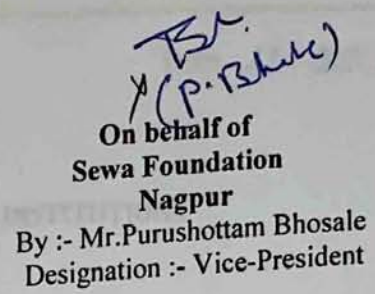 (P. Bhale)
On behalf of
Sewa Foundation
Nagpur
By :- Mr.Purushottam Bhosale
Designation :- Vice-President